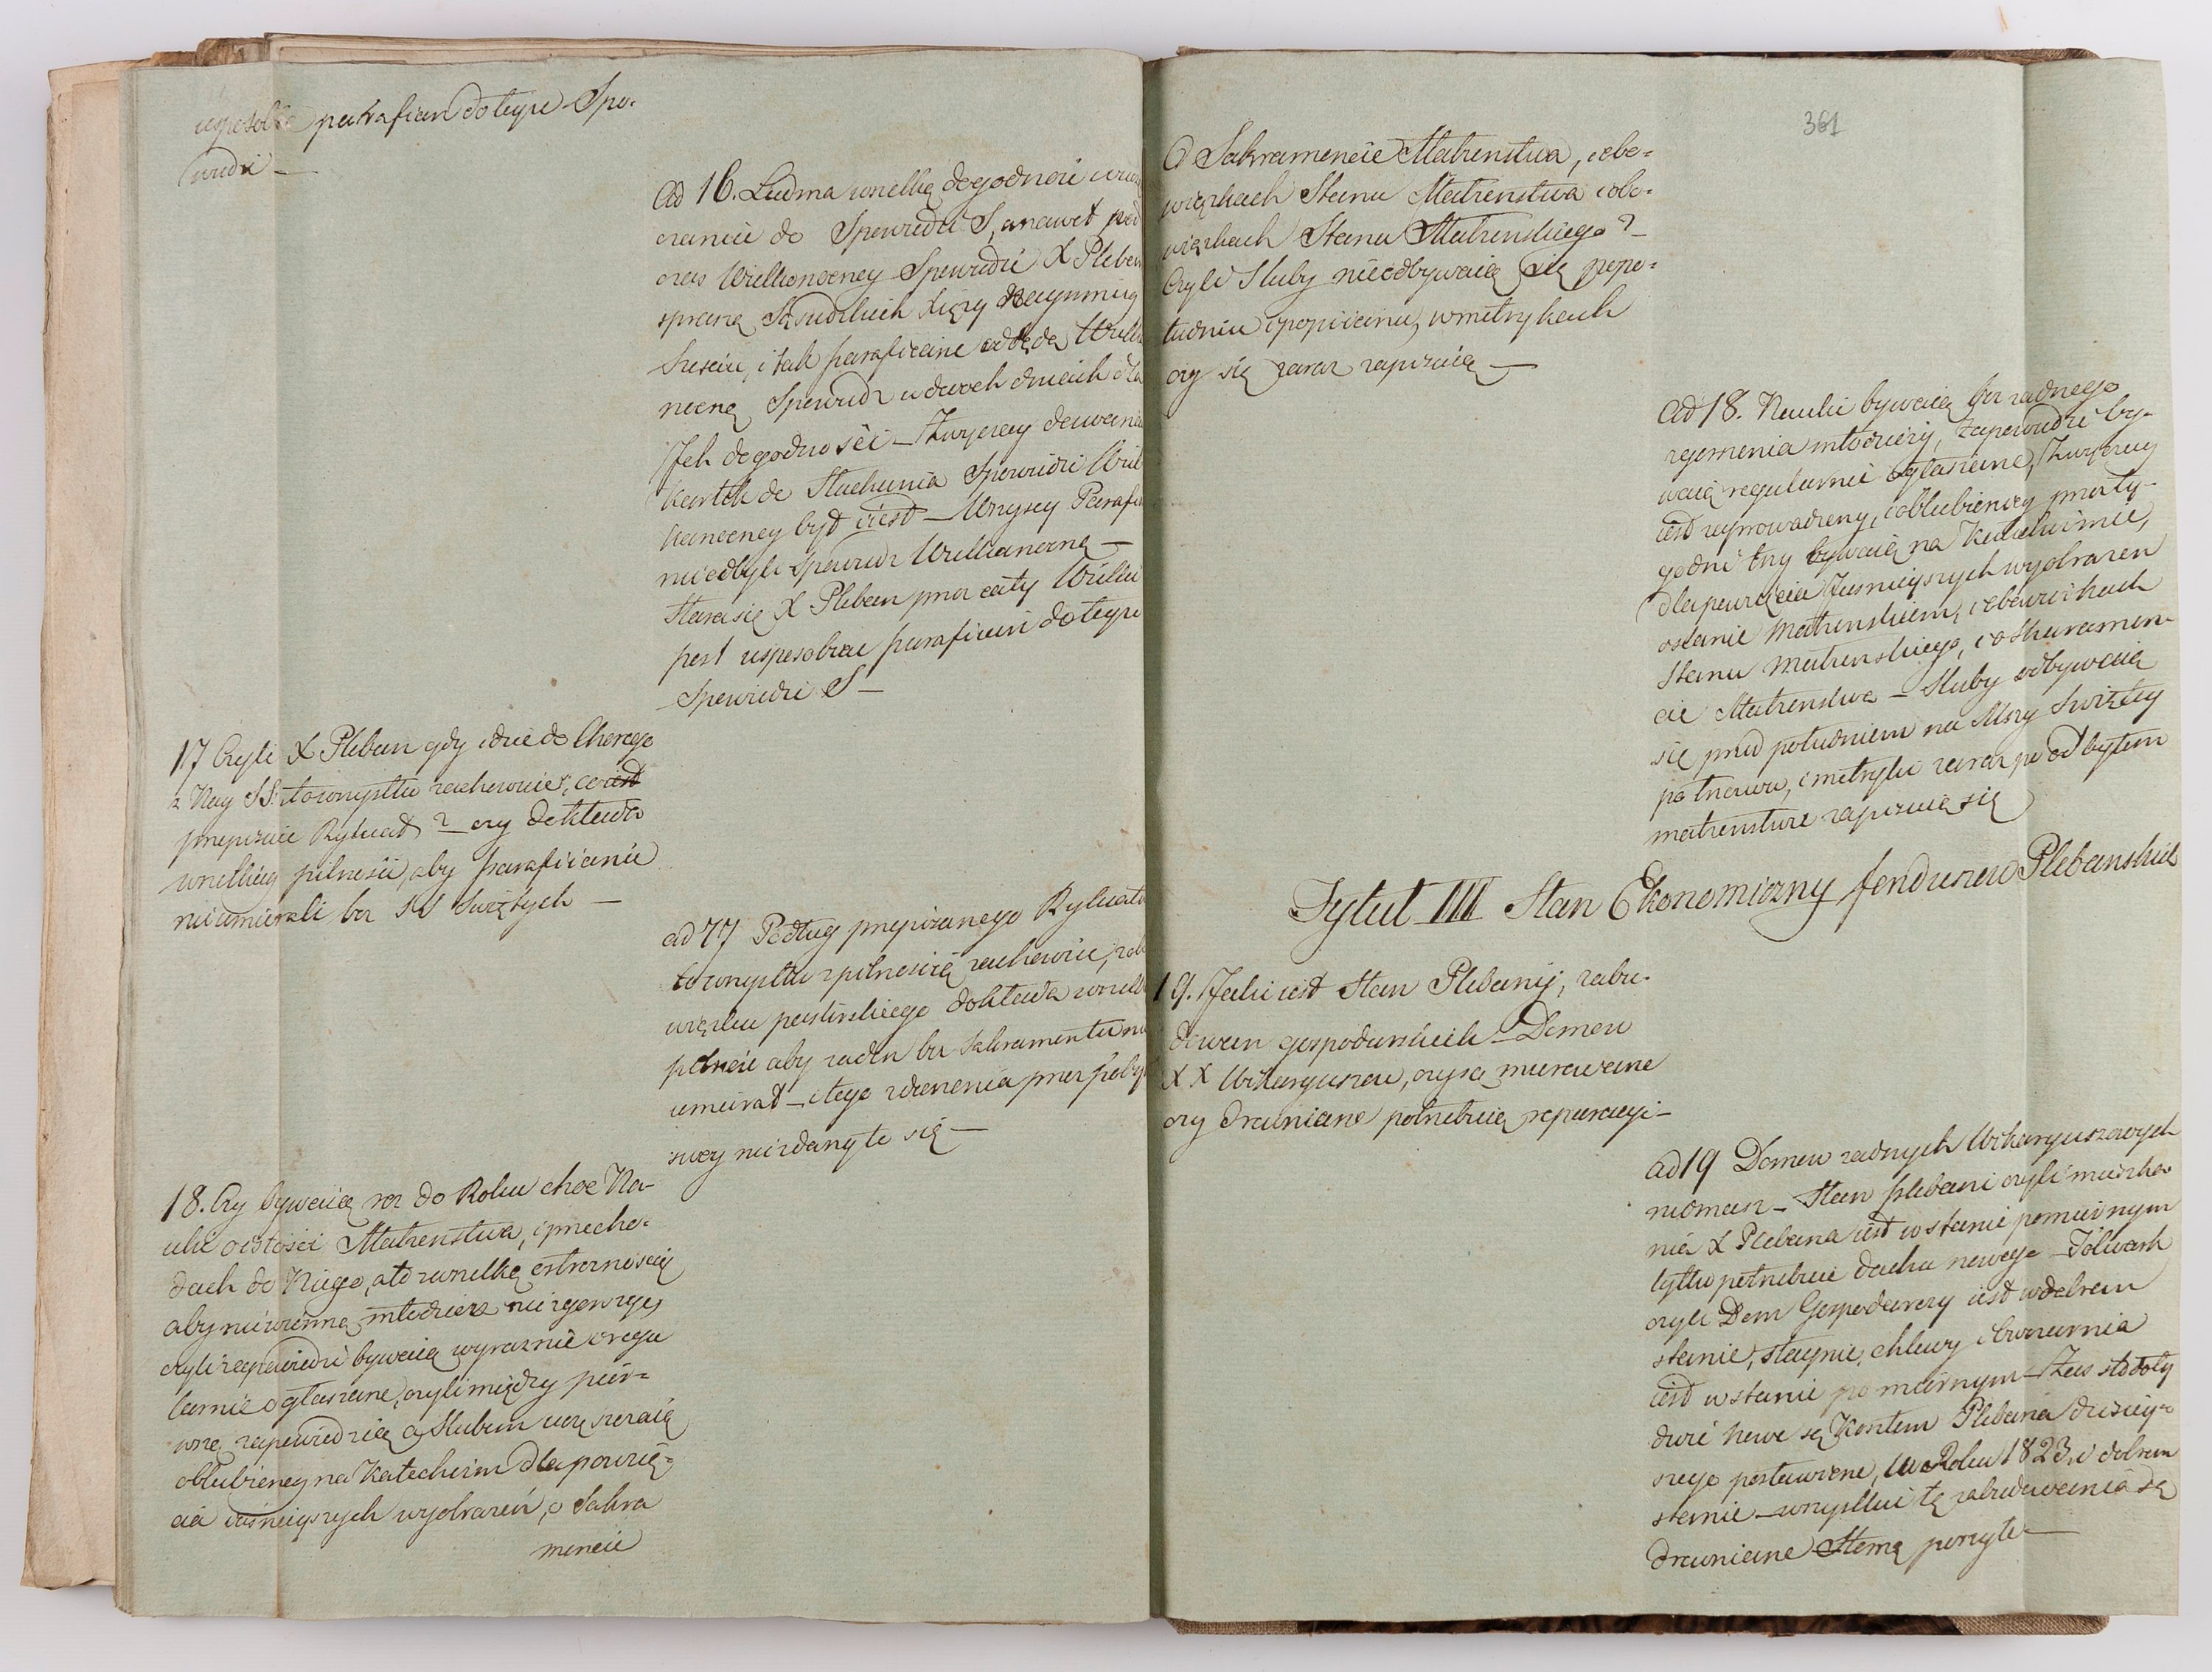 parafian do teyże Spo-
wiedzi —
Ad 16. Lud ma wszelką dogodność
czanie do Spowiedzi S, a nawet
czas Wielkonocney Spowiedzi X Pleban
sprasza Sąsiedzkich Xięży Naymniey
Sześciu, i tak parafianie odbędą
nocną Spowiedź w dwóch dniach dla
Ich dogodności — Zwyczay dawania
Kartek do Słuchania Spowiedzi
kanocney był i iest — Wszyscy
niedbyli Spowiedź Wielkanocną —
Stara się X Pleban przez cały Wielki
post usposobiać parafian do teyże
Spowiedzi S —
17 Czyli X Pleban gdy idzie do Chorego
z Nay SS: to wszystko zachowuie, co iest
przepisuie Rytuał ? — czy dokłada
wszelkiey pilności, aby parafiianie
nieumierali bez SS Swiętych —
ad 17 Podług przepisanego
to wszystko z pilnością zachowuie,
wiązku pastirskiego dokłada
pilność aby żaden bez Sakramentu
umierał — i tego zdarzenia przez
swey niezdarzyło się —
18. Czy bywaią raz do Roku choć Na-
uki o istości Małżenstwa, i przeszko-
dach do Niego, a to z wszelką ostrożnością
aby niewinna młodzież niezgorszyć,
czyli zapowiedzi bywaią wyraźnie i regu
larnie ogłaszane, czyli między pier-
wszą zapowiedzią a Slubem uczęszczaią
oblubieńcy na Katechizm dla powzię-
cia iaśnieyszych wyobrażeń, o Sakra
mencie
361
O Sakramencie Małżenstwa, i obo-
wiązkach Stanu Małżenstwa i obo-
wiązkach Stanu Małżenskiego ? —
Czyli Sluby nieodbywaią się popo-
łudniu i popiianu, w metrykach
czy się zaraz zapisuią —
Ad 18. Nauki bywaią bez żadnego
zgorszenia młodzieży, Zapowiedzi by-
waią regularnie ogłaszane, Zwyczay
iest wprowadzony, i oblubieńcy przez ty-
godni trzy bywaią na Katechizmie,
dla powzięcia Jaśnieyszych wyobrażeń
o stanie Małżenskiem, i obowiązkach
Stanu Małżenskiego, i o Sakramen-
cie Małżenstwa — Sluby odbywaią
się przed południem na Mszy Swiętey
potrzewu, i metryki zaraz po odbytem
małżenstwie zapisuią się
Tytuł III Stan Ekonomiczny funduszów Plebanskich
19. Jaki iest Stan Plebanij, zabu-
dowan gospodarskich — Domow
X X Wikaryuszow, czy są murowane
czy drewniane potrzebuią reparacyi —
ad 19 Domow żadnych Wikaryuszowych
niemasz — Stan plebani czyli mieszka
nia X Plebana iest w stanie pomiernym
tylko potrzebuie dachu nowego — Folwark
czyli Dom Gospodarczy iest w dobrem
stanie, staynie, chlewy i Owczarnia
iest w stanie pomiernym — Zas stodoły
dwie nowe są Kosztem Plebana dzisiey-
szego postawione, w Roku 1823. w dobrem
stanie — wszystkie te zabudowania są
drewniane Słomą poszyte —